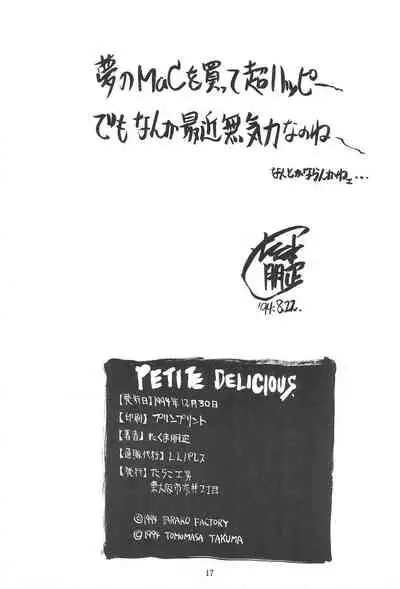 夢のMacを買って超ハッピー〜
でもなんか最近無気力なのね〜
なんとかならんかねェ・・・
たくま
朋正
'94.8.22.
PETITE DELICIOUS
【発行日】1994年12月30日
【印刷】プリンプリント
【著者】たくま朋正
【通販代行】LLパレス
【発行】たらこ工房
東大阪市
2丁目
©1994 TARAKO FACTORY
©1994 TOMOMASA TAKUMA
17